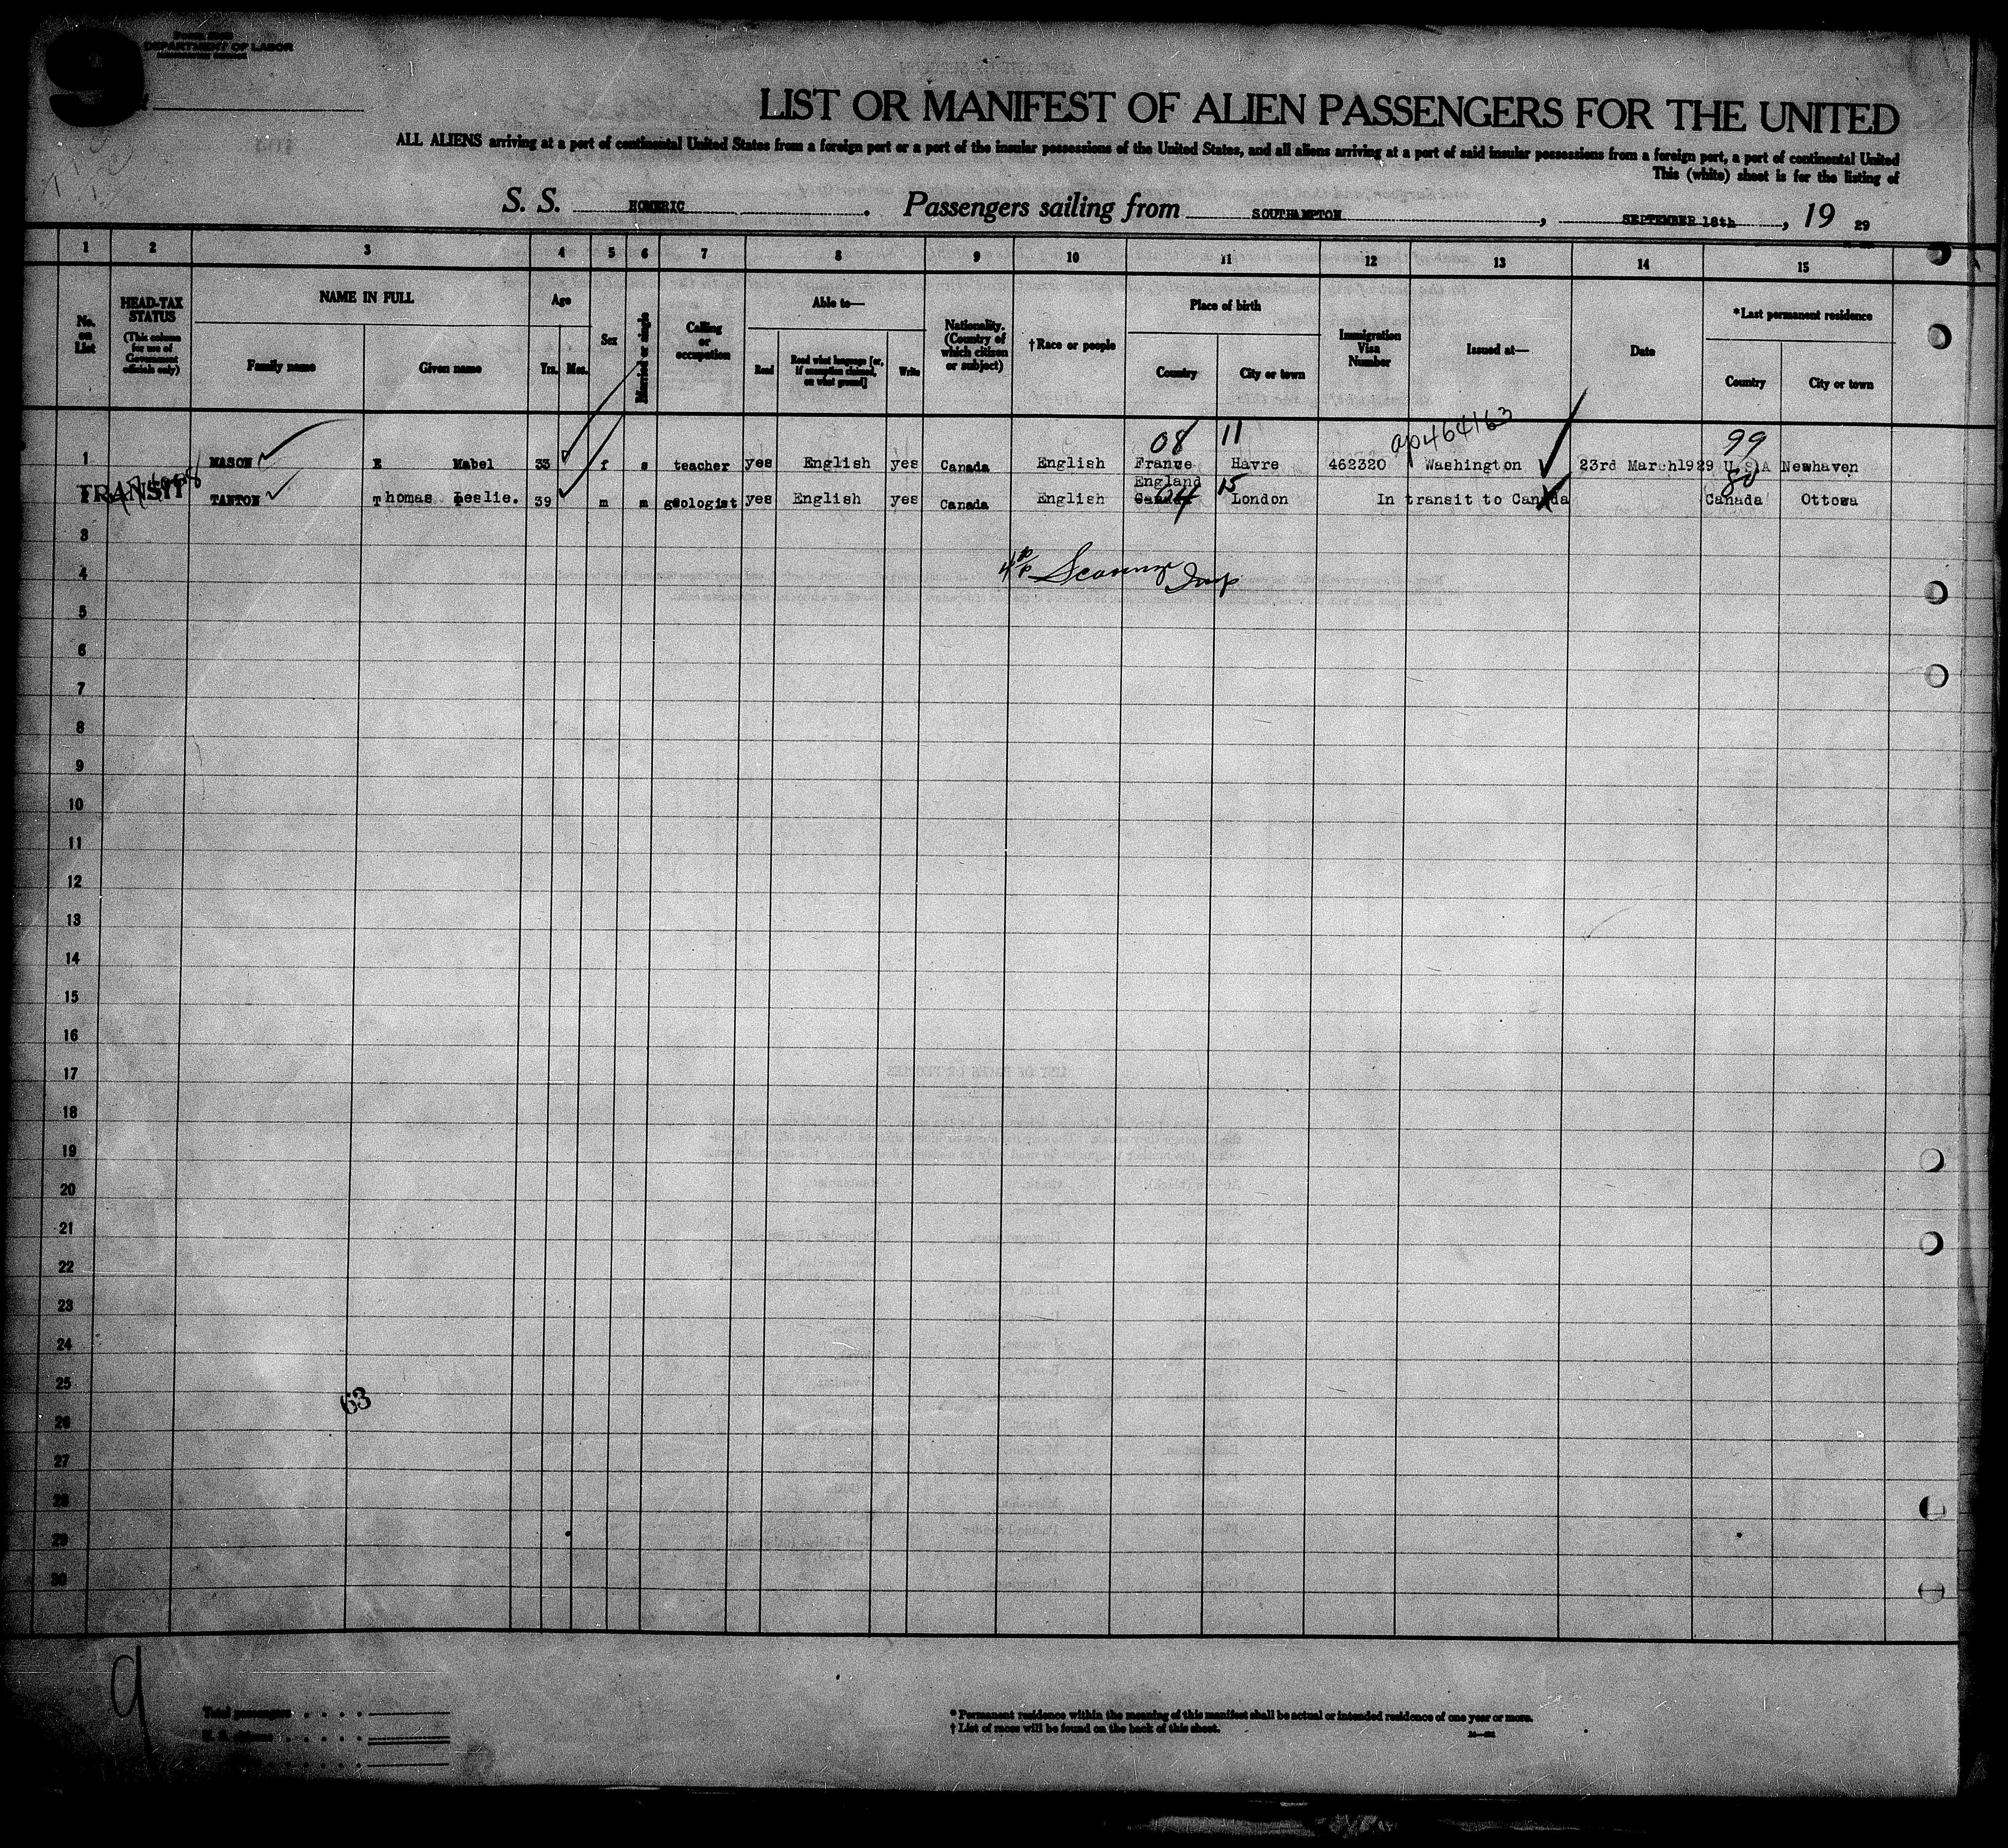 9
DEPARTMENT OF LABOR
LIST OR MANIFEST OF ALIEN PASSENGERS FOR THE UNITED
ALL ALIENS arriving at a port of continental United States from a foreign port or a port of the insular possessions of the United States, and all aliens arriving at a port of said insular possessions from a foreign port, a port of continental United
This (white) sheet is for the listing of
S. S. HOMERIC. Passengers sailing from SOUTHAMPTON, SEPTEMBER 18th, 19 29
1 2 3 4 5 6 7 8 9 10 11 12 13 14 15
No. on List
HEAD-TAX STATUS (This column for use of Government officials only)
NAME IN FULL
Family name Given name
Age
Yrs. Mos.
Sex
Married or single
Calling or occupation
Able to—
Read Read what language [or, if exemption claimed, on what ground] Write
Nationality. (Country of which citizen or subject)
†Race or people
Place of birth
Country City or town
Immigration Visa Number
Issued at—
Date
*Last permanent residence
Country City or town
08 11 ap464163 99
1 MASON E Mabel 33 f s teacher yes English yes Canada English France Havre 462320 Washington 23rd March1929 U.S.A Newhaven
England 15 80
TRANSIT TANTON Thomas Leslie. 39 m m geologist yes English yes Canada English Canada London In transit to Canada Canada Ottowa
3
4
5
6
7
8
9
10
11
12
13
14
15
16
17
18
19
20
21
22
23
24
25
63
26
27
28
29
30
9
Total passengers
U. S. citizens
* Permanent residence within the meaning of this manifest shall be actual or intended residence of one year or more.
† List of races will be found on the back of this sheet.